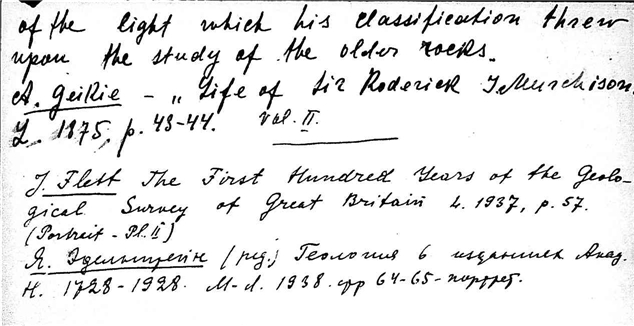 of the light which his classification threw
upon the study of the older rocks.
A. Geikie - „ Life of Sir Roderick I Murchison.
L. 1875, p. 43-44. Vol. II.
J. Flett The First Hundred Years of the Geolo-
gical Survey of Great Britain L. 1937, p. 57.
(Portrait - Pl. II)
Я. Эдельштейн (ред.) Геология в изданиях Акад.
Н. 1728-1928. М-Л. 1938. стр 64-65-портрет.